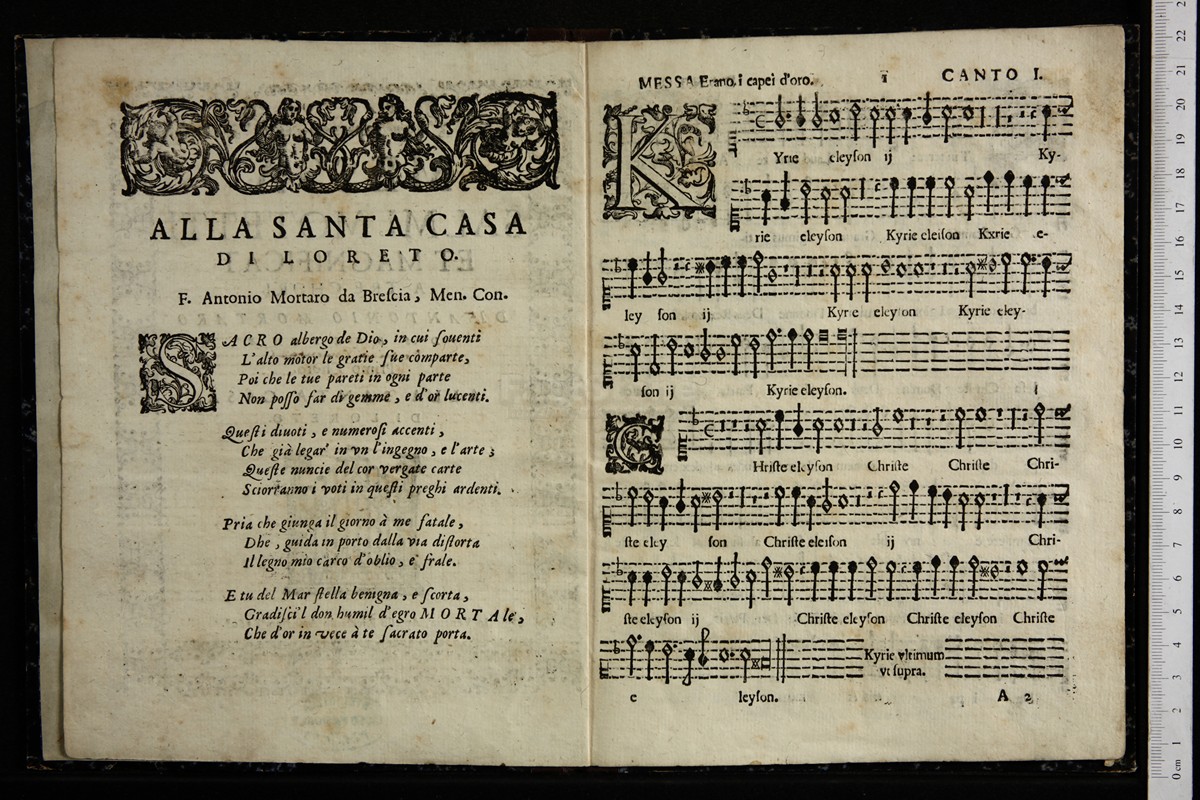 ALLA SANTA CASA
DI LORETO.
F. Antonio Mortaro da Breſcia, Men. Con.
SACRO albergo de Dio, in cui ſouenti
L'alto motor le gratie ſue comparte,
Poi che le tue pareti in ogni parte
Non poſſo far di gemme, e d'or lucenti.
Queſti diuoti, e numeroſi accenti,
Che già legar' in vn l'ingegno, e l'arte;
Queſte nuncie del cor vergate carte
Sciorranno i voti in queſti preghi ardenti.
Pria che giunga il giorno à me fatale,
Dhe, guida in porto dalla via diſtorta
Il legno mio carco d'oblio, e frale.
E tu del Mar ſtella benigna, e ſcorta,
Gradiſci'l don humil d'egro MORTAle,
Che d'or in vece à te ſacrato porta.
MESSA Erano i capei d'oro. 1 CANTO I.
KYrie eleyſon ij Ky-
rie eleyſon Kyrie eleiſon Kxrie e-
ley ſon ij Kyrie eleyſon Kyrie eley-
ſon ij Kyrie eleyſon.
CHriſte eleyſon Chriſte Chriſte Chri-
ſte eley ſon Chriſte eleiſon ij Chri-
ſte eleyſon ij Chriſte eleyſon Chriſte eleyſon Chriſte
Kyrie vltimum
vt ſupra.
e leyſon. A 2
0 cm 1 2 3 4 5 6 7 8 9 10 11 12 13 14 15 16 17 18 19 20 21 22